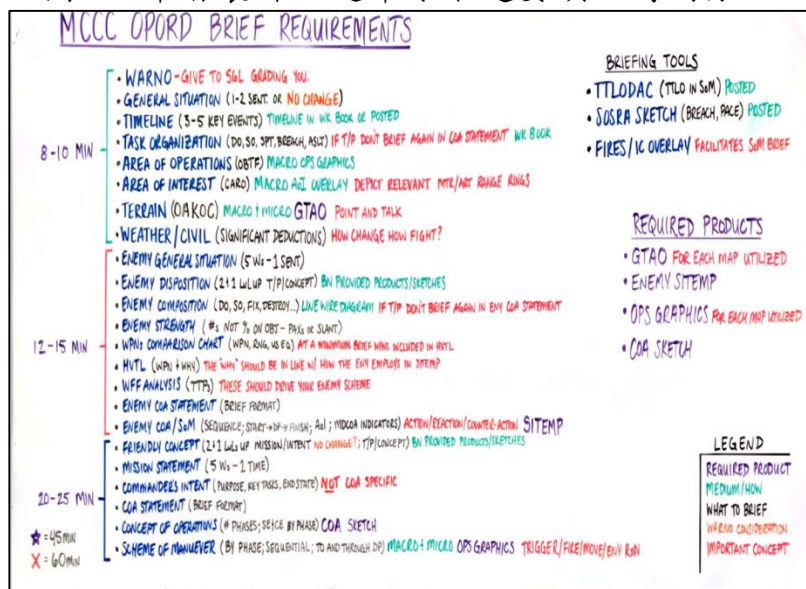 MCCC OPORD BRIEF REQUIREMENTS
8-10 MIN
• WARNO - GIVE TO SGL GRADING YOU.
• GENERAL SITUATION (1-2 SENT. OR NO CHANGE)
• TIMELINE (3-5 KEY EVENTS) TIMELINE IN WK BOOK OR POSTED
• TASK ORGANIZATION (DO, SO, SPT, BREACH, ASLT) IF T/P DON'T BRIEF AGAIN IN COA STATEMENT WK BOOK
• AREA OF OPERATIONS (OBTF) MACRO OPS GRAPHICS
• AREA OF INTEREST (CARO) MACRO AoI OVERLAY DEPICT RELEVANT MTR/ART RANGE RINGS
• TERRAIN (OAKOC) MACRO + MICRO GTAO POINT AND TALK
• WEATHER/CIVIL (SIGNIFICANT DEDUCTIONS) HOW CHANGE HOW FIGHT?
12-15 MIN
• ENEMY GENERAL SITUATION (5 Ws - 1 SENT)
• ENEMY DISPOSITION (2+1 LVL UP T/P/CONCEPT) BN PROVIDED PRODUCTS/SKETCHES
• ENEMY COMPOSITION (DO, SO, FIX, DESTROY...) LINE WIRE DIAGRAM IF T/P DON'T BRIEF AGAIN IN ENY COA STATEMENT
• ENEMY STRENGTH (#s NOT % ON OBJ - PAXs OR SLANT)
• WPNs COMPARISON CHART (WPN, RNG, US EQ) AT A MINIMUM BRIEF WPNS INCLUDED IN HVTL
• HVTL (WPN + WHY) THE "WHY" SHOULD BE IN LINE W/ HOW THE ENY EMPLOYS IN SITEMP
• WFF ANALYSIS (TTPs) THESE SHOULD DRIVE YOUR ENEMY SCHEME
• ENEMY COA STATEMENT (BRIEF FORMAT)
• ENEMY COA/SoM (SEQUENCE; START→DP→FINISH; AoI; MDCOA INDICATORS) ACTION/REACTION/COUNTER-ACTION SITEMP
20-25 MIN
• FRIENDLY CONCEPT (2+1 LVLs UP MISSION/INTENT NO CHANGE?; T/P/CONCEPT) BN PROVIDED PRODUCTS/SKETCHES
• MISSION STATEMENT (5 Ws - 1 TIME)
• COMMANDER'S INTENT (PURPOSE, KEY TASKS, END STATE) NOT COA SPECIFIC
• COA STATEMENT (BRIEF FORMAT)
• CONCEPT OF OPERATIONS (# PHASES; SE+CE BY PHASE) COA SKETCH
• SCHEME OF MANUEVER (BY PHASE; SEQUENTIAL; TO AND THROUGH DP) MACRO + MICRO OPS GRAPHICS TRIGGER/FIRE/MOVE/ENY RXN
★ = 45 MIN
X = 60 MIN
BRIEFING TOOLS
• TTLODAC (TTLO IN SoM) POSTED
• SOSRA SKETCH (BREACH, PACE) POSTED
• FIRES/IC OVERLAY FACILITATES SoM BRIEF
REQUIRED PRODUCTS
• GTAO FOR EACH MAP UTILIZED
• ENEMY SITEMP
• OPS GRAPHICS FOR EACH MAP UTILIZED
• COA SKETCH
LEGEND
REQUIRED PRODUCT
MEDIUM/HOW
WHAT TO BRIEF
WARNO CONSIDERATION
IMPORTANT CONCEPT